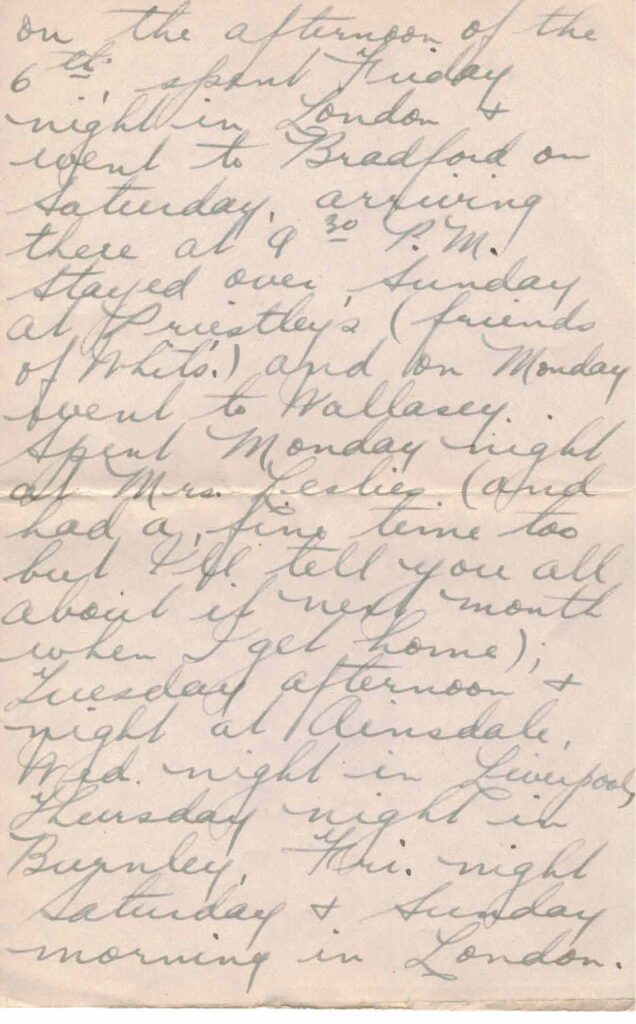 on the afternoon of the
6th, spent Friday
night in London &
went to Bradford on
Saturday, arriving
there at 9 30 P.M.
Stayed over Sunday
at Priestley's (friends
of Whit's.) and on Monday
went to Wallasey.
Spent Monday night
at Mrs. Leslies (and
had a fine time too
but I'll tell you all
about it next month
when I get home);
Tuesday afternoon &
night at Ainsdale,
Wed. night in Liverpool,
Thursday night in
Burnley, Fri. night
Saturday & Sunday
morning in London.